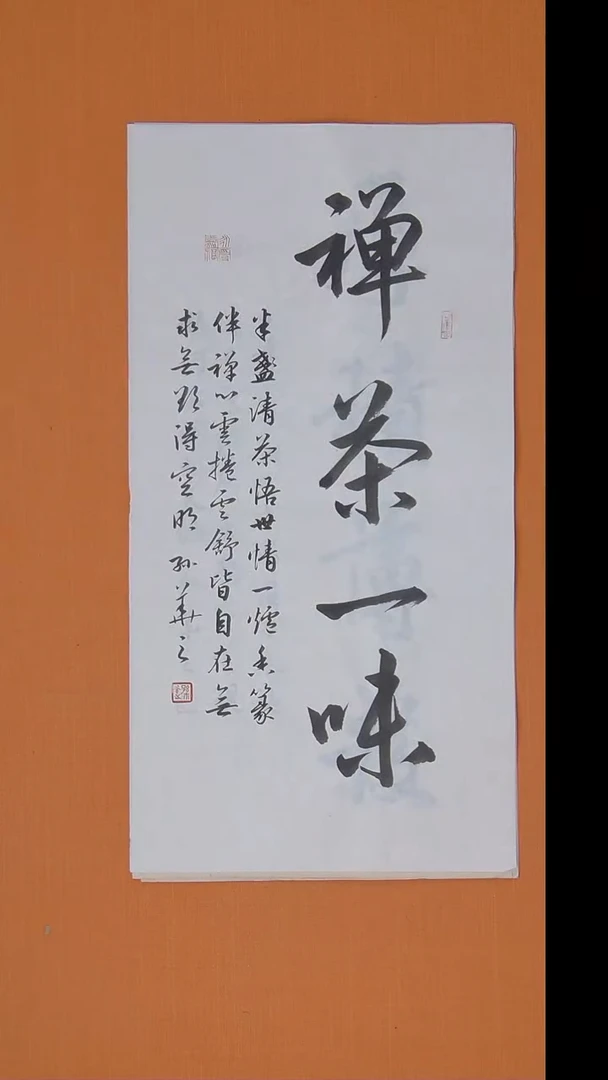 禅茶一味
半盏清茶悟世情一爐香篆
伴禅心雲捲雲舒皆自在無
求無欲得空明 孫華之